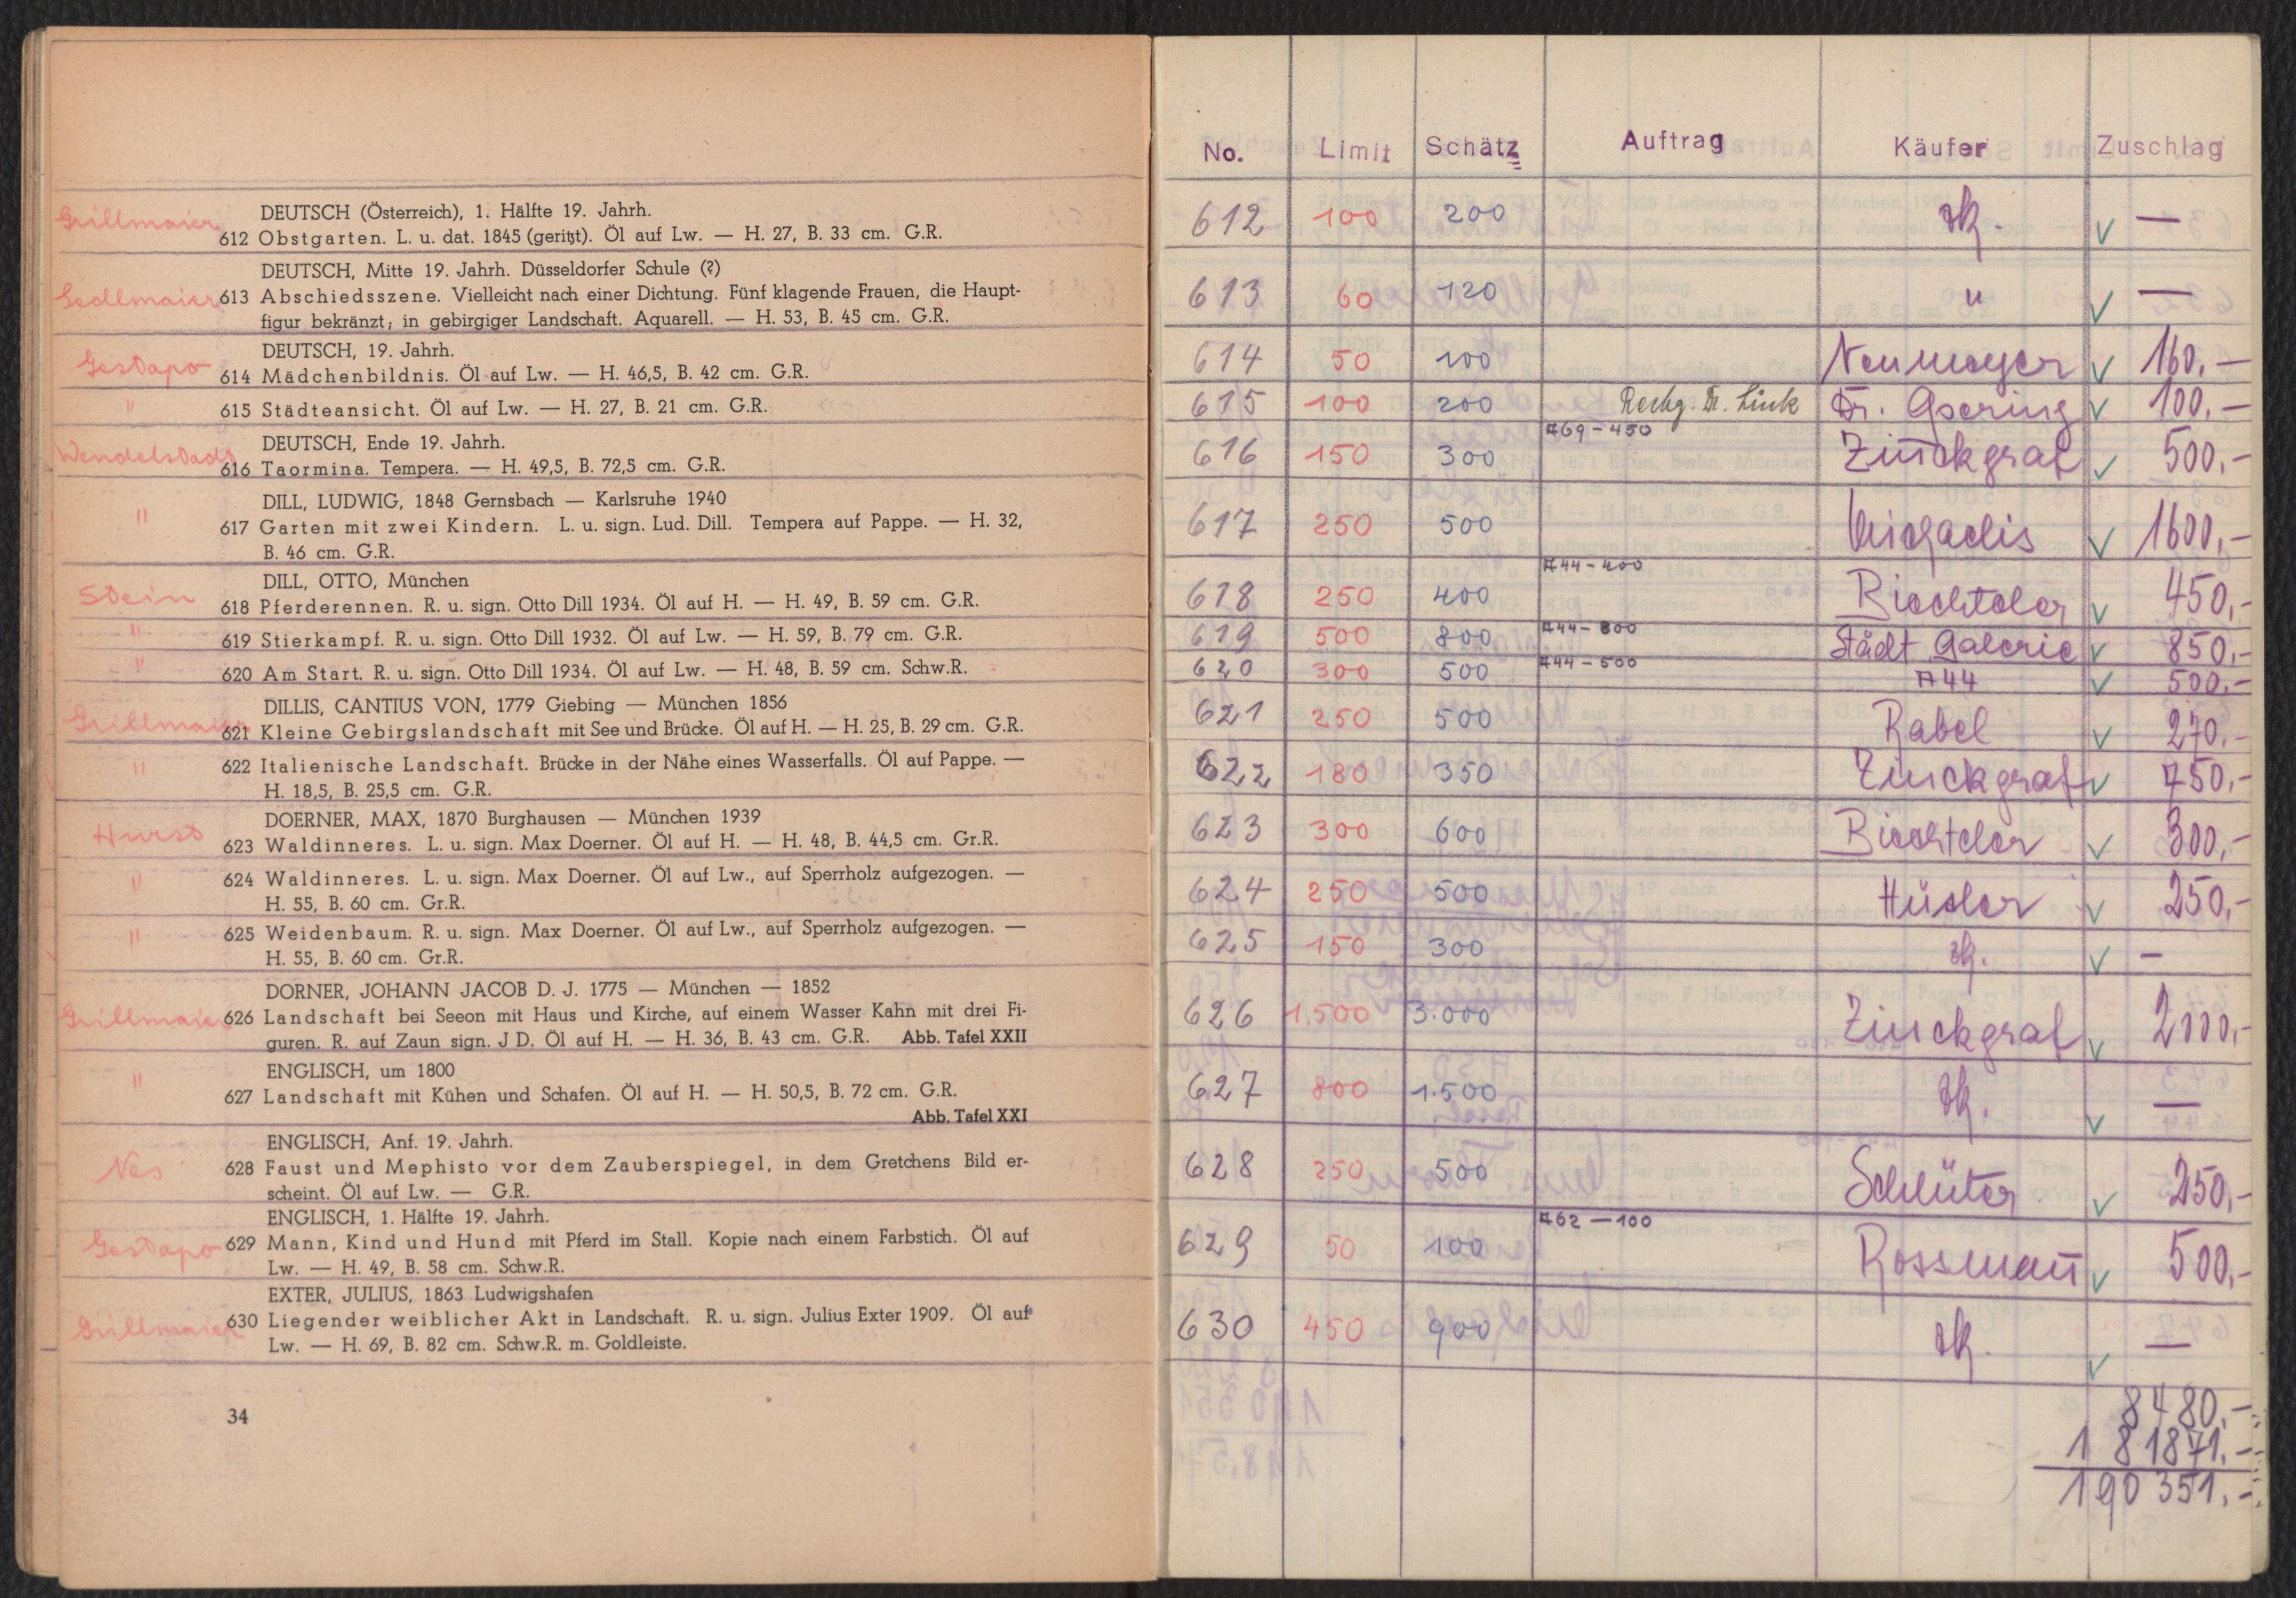 Grillmaier
DEUTSCH (Österreich), 1. Hälfte 19. Jahrh.
612 Obstgarten. L. u. dat. 1845 (geritzt). Öl auf Lw. — H. 27, B. 33 cm. G.R.
DEUTSCH, Mitte 19. Jahrh. Düsseldorfer Schule (?)
Sedlmaier 613 Abschiedsszene. Vielleicht nach einer Dichtung. Fünf klagende Frauen, die Haupt-
figur bekränzt; in gebirgiger Landschaft. Aquarell. — H. 53, B. 45 cm. G.R.
DEUTSCH, 19. Jahrh.
Gestapo 614 Mädchenbildnis. Öl auf Lw. — H. 46,5, B. 42 cm. G.R.
" 615 Städteansicht. Öl auf Lw. — H. 27, B. 21 cm. G.R.
DEUTSCH, Ende 19. Jahrh.
Wendelstadt 616 Taormina. Tempera. — H. 49,5, B. 72,5 cm. G.R.
DILL, LUDWIG, 1848 Gernsbach — Karlsruhe 1940
" 617 Garten mit zwei Kindern. L. u. sign. Lud. Dill. Tempera auf Pappe. — H. 32,
B. 46 cm. G.R.
DILL, OTTO, München
Stein 618 Pferderennen. R. u. sign. Otto Dill 1934. Öl auf H. — H. 49, B. 59 cm. G.R.
" 619 Stierkampf. R. u. sign. Otto Dill 1932. Öl auf Lw. — H. 59, B. 79 cm. G.R.
" 620 Am Start. R. u. sign. Otto Dill 1934. Öl auf Lw. — H. 48, B. 59 cm. Schw.R.
DILLIS, CANTIUS VON, 1779 Giebing — München 1856
Grillmaier 621 Kleine Gebirgslandschaft mit See und Brücke. Öl auf H. — H. 25, B. 29 cm. G.R.
" 622 Italienische Landschaft. Brücke in der Nähe eines Wasserfalls. Öl auf Pappe. —
H. 18,5, B. 25,5 cm. G.R.
DOERNER, MAX, 1870 Burghausen — München 1939
Hurst 623 Waldinneres. L. u. sign. Max Doerner. Öl auf H. — H. 48, B. 44,5 cm. Gr.R.
" 624 Waldinneres. L. u. sign. Max Doerner. Öl auf Lw., auf Sperrholz aufgezogen. —
H. 55, B. 60 cm. Gr.R.
" 625 Weidenbaum. R. u. sign. Max Doerner. Öl auf Lw., auf Sperrholz aufgezogen. —
H. 55, B. 60 cm. Gr.R.
DORNER, JOHANN JACOB D. J. 1775 — München — 1852
Grillmaier 626 Landschaft bei Seeon mit Haus und Kirche, auf einem Wasser Kahn mit drei Fi-
guren. R. auf Zaun sign. J D. Öl auf H. — H. 36, B. 43 cm. G.R. Abb. Tafel XXII
ENGLISCH, um 1800
" 627 Landschaft mit Kühen und Schafen. Öl auf H. — H. 50,5, B. 72 cm. G.R.
Abb. Tafel XXI
ENGLISCH, Anf. 19. Jahrh.
Nes 628 Faust und Mephisto vor dem Zauberspiegel, in dem Gretchens Bild er-
scheint. Öl auf Lw. — G.R.
ENGLISCH, 1. Hälfte 19. Jahrh.
Gestapo 629 Mann, Kind und Hund mit Pferd im Stall. Kopie nach einem Farbstich. Öl auf
Lw. — H. 49, B. 58 cm. Schw.R.
EXTER, JULIUS, 1863 Ludwigshafen
Grillmaier 630 Liegender weiblicher Akt in Landschaft. R. u. sign. Julius Exter 1909. Öl auf
Lw. — H. 69, B. 82 cm. Schw.R. m. Goldleiste.
34
No. Limit Schätz Auftrag Käufer Zuschlag
612 100 200 ✓ —
613 60 120 " ✓ —
614 50 100 Neumayer ✓ 160.-
615 100 200 Rechg. Dr. Link Dr. Goering ✓ 100.-
616 150 300 A69-450 Zinckgraf ✓ 500.-
617 250 500 Michaelis ✓ 1600.-
618 250 400 A44-400 Biechteler ✓ 450.-
619 500 800 A44-800 Städt Galerie ✓ 850.-
620 300 500 A44-500 A44 ✓ 500.-
621 250 500 Rabel ✓ 270.-
622 180 350 Zinckgraf ✓ 750.-
623 300 600 Biechteler ✓ 300.-
624 250 500 Hüsler ✓ 250.-
625 150 300 ✓ —
626 1.500 3.000 Zinckgraf ✓ 2000.-
627 800 1.500 ✓ —
628 250 500 Schlüter ✓ 250.-
629 50 100 A62-100 Rossmañ ✓ 500.-
630 450 900 ✓ —
8480.-
181871.-
190351.-